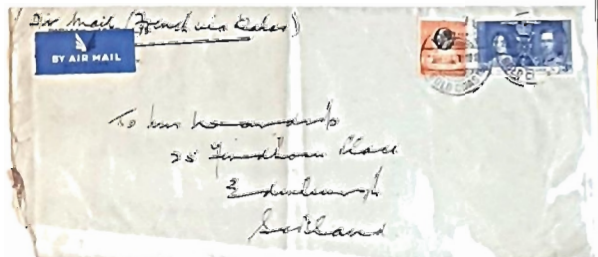 Air Mail (French via Dakar)
BY AIR MAIL
GOLD COAST
To
25 Findhorn Place
Edinburgh
Scotland